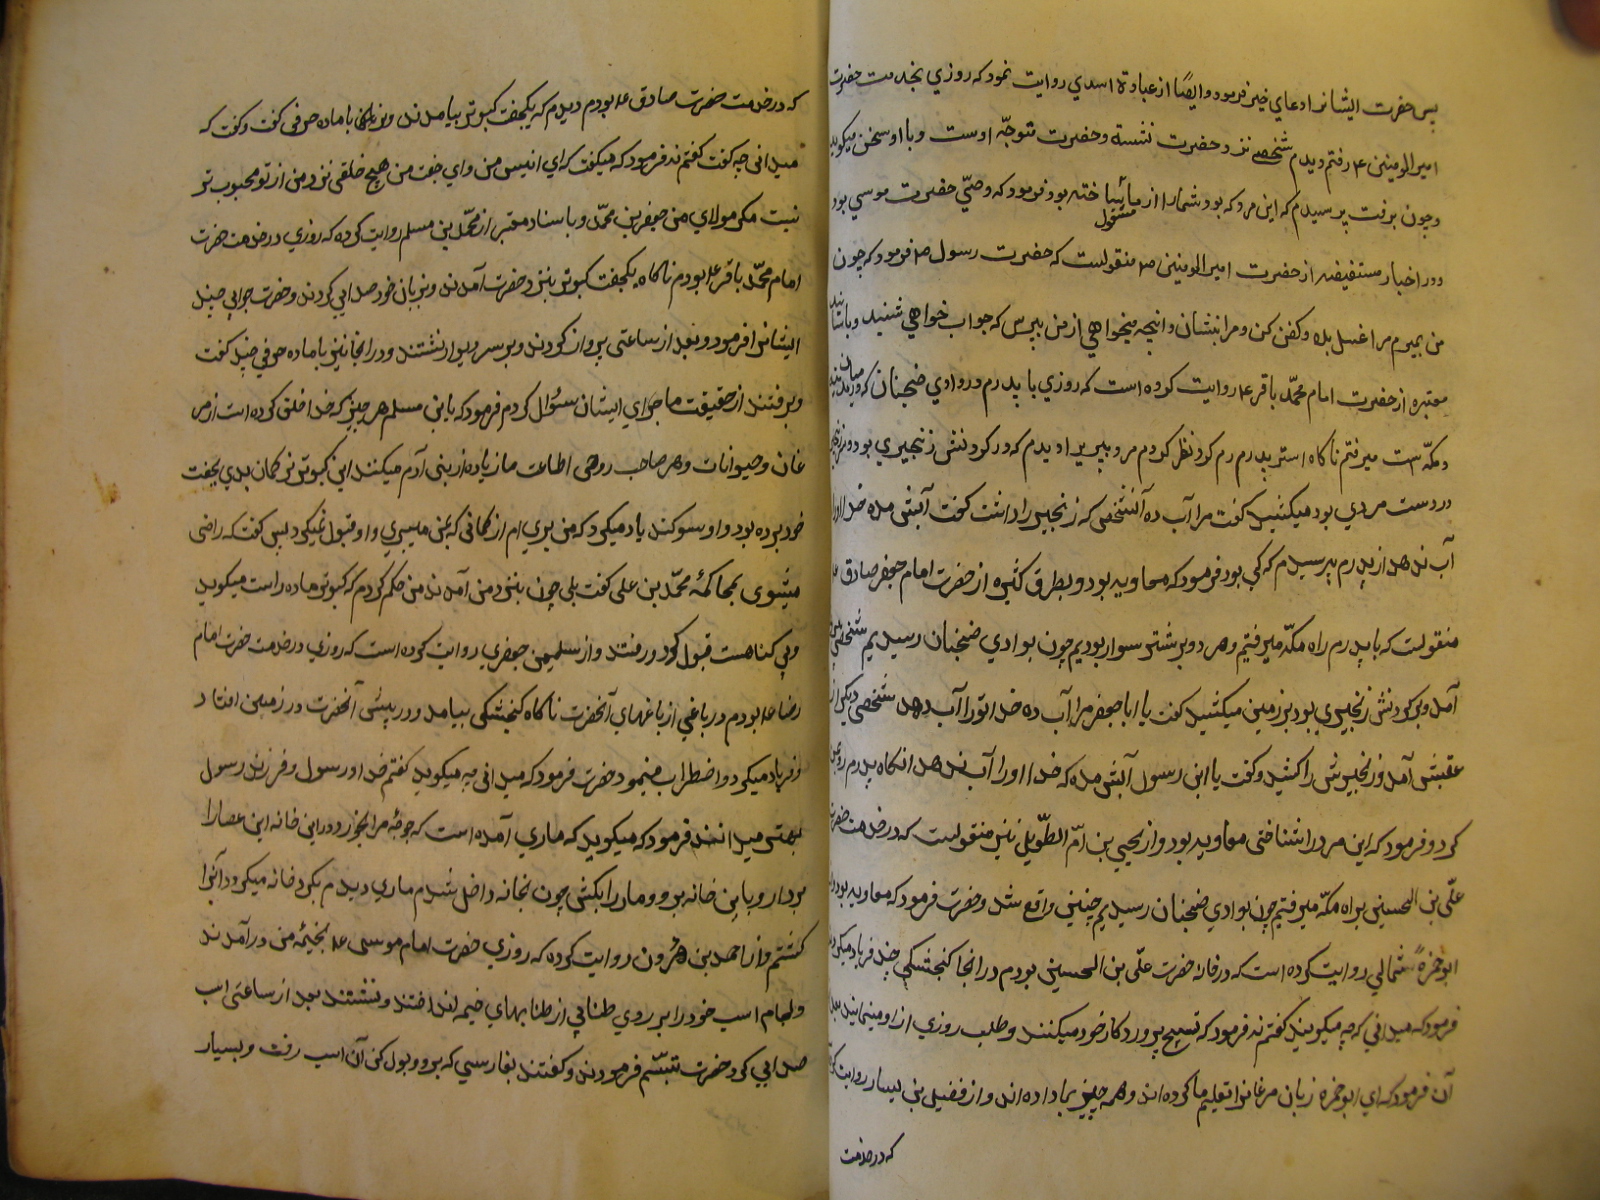 پس حضرت ایشانرا دعای خیر فرمود و ایضًا از عبادة اسدی روایت نمود که روزی بخدمت حضرت
امیرالمومنین ع م رفتم دیدم شخصی نزد حضرت نشسته و حضرت متوجّه اوست و با او سخن میکوید
و چون برفت پرسیدم که این مرد که بود شمارا از ما مشغول ساخته بود فرمود که وصّی حضرت موسی بود
و در اخبار مستفیضه از حضرت امیرالمومنین ص منقولست که حضرت رسول ص فرمود که چون
من بمیرم مرا غسل بده و کفن کن و مرا بنشان و آنچه میخواهی از من بپرس که جواب خواهی شنید و باسانید
معتبره از حضرت امام محمّد باقر ع روایت کرده است که روزی با پدرم در وادی ضجنان که در میان مدینه
و مکّه است میرفتم ناکاه استر پدرم رم کرد نظر کردم مرد پیریرا دیدم که در کردنش زنجیری بود و سر زنجیر
در دست مردی بود میکشید کفت مرا آب ده آنشخص که زنجیر را داشت کفت آبش مده خدا اورا
آب ندهد از پدرم پرسیدم که کی بود فرمود که معاویه بود و بطرق کثیره از حضرت امام جعفر صادق ع
منقولست که با پدرم راه مکّه میرفتیم و هر دو بر شتر سوار بودیم چون بوادی ضجنان رسیدیم شخصی
آمد و بر کردنش زنجیری بود بر زمین میکشید کفت یا ابا جعفر مرا آب ده خدا تو را آب دهد شخصی دیکر از
عقبش آمد و زنجیرش را کشید و کفت یا ابن رسول آبش مده که خدا اورا آب ندهد انکاه پدرم رو بمن
کرد و فرمود که این مرد را شناختی معاویه بود و از یحیی بن امّ الطّویل نیز منقولست که در خدمت حضرت
علّی بن الحسین براه مکّه میرفتیم چون بوادی ضجنان رسیدیم چنین واقع شد و حضرت فرمود که معاویه بود و از
ابو حمزهٔ ثمالی روایت کرده است که در خانه حضرت علّی بن الحسین بودم در انجا کنجشکی چند فریاد میکردند
فرمود که میدانی که چه میکویند کفتم نه فرمود که تسبیح پرورد کار خود میکنند و طلب روزی از او مینمایند بعد
آن فرمود که ای ابو حمزه زبان مرغانرا تعلیم ما کرده اند و همه چیز بما داده اند و از فضیل بن یسار روایت کرده
که در خدمت
که در خدمت حضرت صادق ع بودم دیدم که یکجفت کبوتر بیامدند و نر با ماده حرفی کفت و کفت که
میدانی چه کفت کفتم نه فرمود که میکفت که ای انیس من و ای جفت من هیچ خلقی نزد من از تو محبوب تر
نیست مکر مولای من جعفر بن محمّد و باسناد معتبر از محمّد بن مسلم روایت کرده که روزی در خدمت حضرت
امام محمّد باقر ع بودم ناکاه یکجفت کبوتر بنزد حضرت آمدند و بزبان خود صدایی کردند و حضرت جوابی چند
ایشانرا فرمود و بعد از ساعتی پرواز کردند و بر سر دیوار نشستند و در انجا نیز نر با ماده حرفی چند کفت
و برفتند از حقیقت ماجرای ایشان سئوال کردم فرمود که یا بن مسلم هر چیز که خدا خلق کرده است از مر
غان و حیوانات و هر صاحب روحی اطاعت ما زیاده از بنی آدم میکنند این کبوتر نر کمان بدی بجفت
خود برده بود و او سوکند یاد میکرد که من بری ام از کمانی که بمن میبری و او قبول نمیکرد پس کفت که راضی
میشوی بمحاکمهٔ محمّد بن علی کفت بلی چون بنزد من آمدند من حکم کردم که کبوتر ماده راست میکوید
و بی کناهست قبول کرد و رفتند و از سلیمن جعفری روایت کرده است که روزی در خدمت حضرت امام
رضا ع بودم در باغی از باغهای آنحضرت ناکاه کنجشکی بیامد و در پیش آنحضرت و در زمین افتاد
و فریاد میکرد و اضطراب مینمود حضرت فرمود که میدانی چه میکوید کفتم خدا و رسول و فرزند رسول
بهتر میدانند فرمود که میکوید که ماری آمده است که جوجهٔ مرا بخورد در این خانه این عصا را
بردار و باین خانه برو و مار را بکش چون بخانه داخل شدم ماری دیدم بکرد خانه میکردد آنرا
کشتم و از احمد بن هٰرون روایت کرده که روزی حضرت امام موسی ع بخیمهٔ من درآمدند
و لجام اسب خود را بر روی طنابی از طنابهای خیمه انداختند و نشستند بعد از ساعتی اسب
صدایی کرد حضرت تبسّم فرمودند و کفتند بفارسی که برو و بول کن آن اسب رفت و بسیار